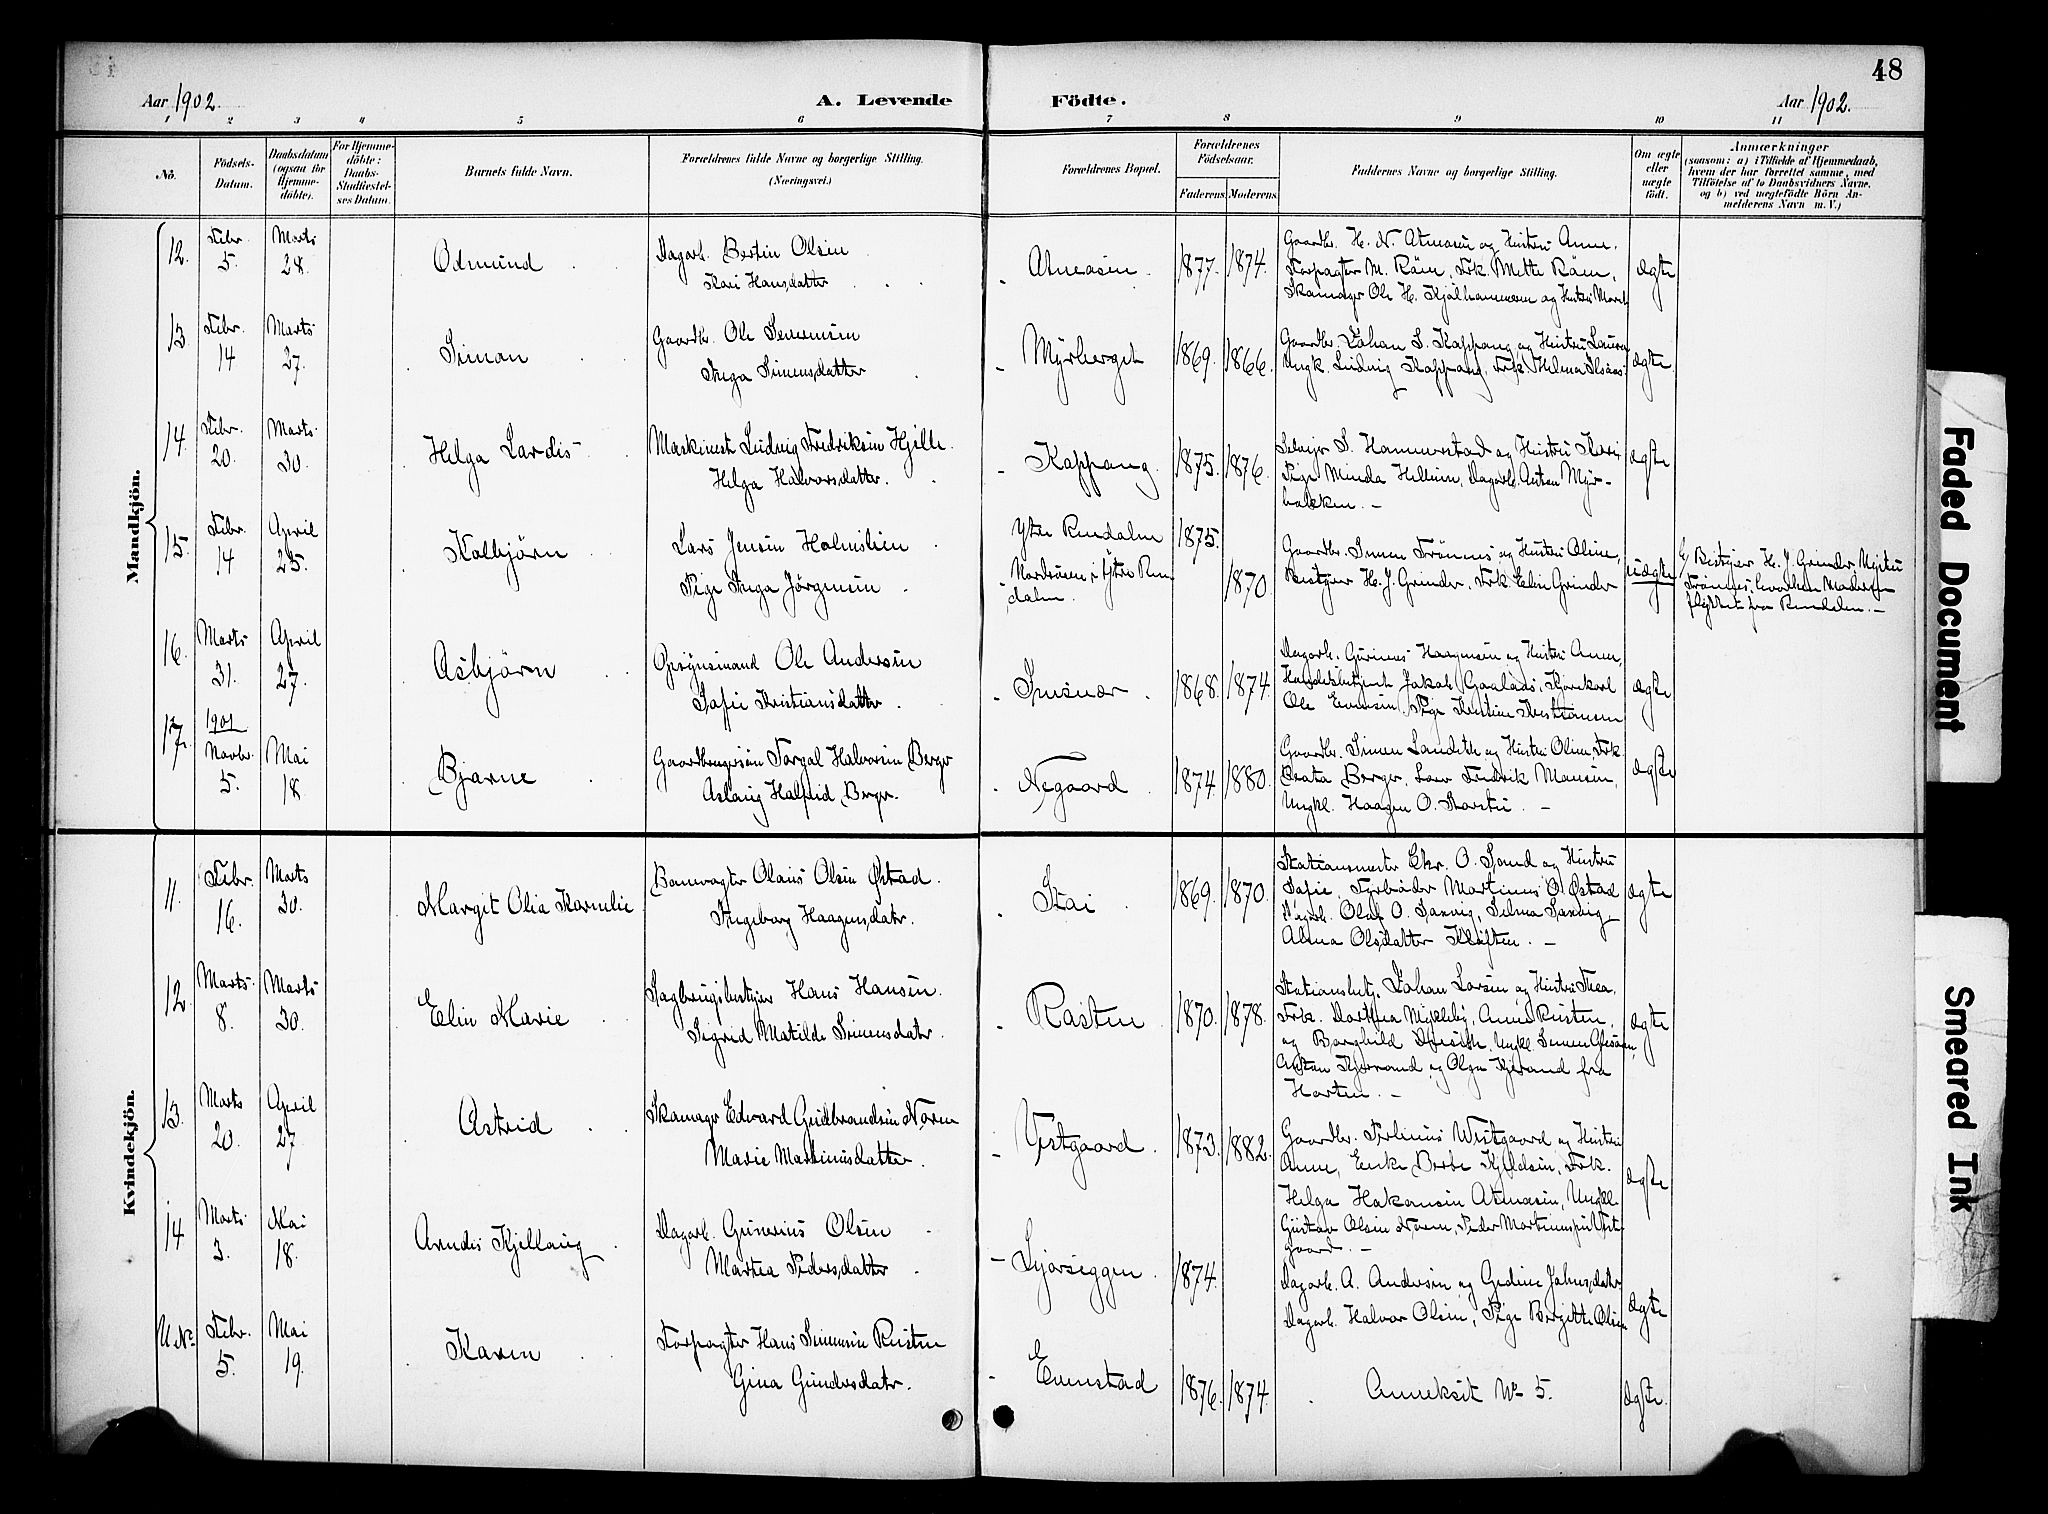 48
Aar 1902. A. Levende Födte. Aar 1902.
1 2 3 4 5 6 7 8 9 10 11
No. Födsels-Datum. Daabsdatum (ogsaa for Hjemme-döbte). For Hjemme-döbte: Daabs-Stadfæstel-ses Datum. Barnets fulde Navn. Forældrenes fulde Navne og borgerlige Stilling. (Næringsvei.) Forældrenes Bopæl. Forældrenes Födselsaar. Faderens Moderens Faddernes Navne og borgerlige Stilling. Om ægte eller uægte födt. Anmærkninger
(saasom: a) i Tilfælde af Hjemmedaab,
hvem der har forrettet samme, med
Tilföielse af to Daabsvidners Navne,
og b) ved uegtefödte Börn An-
melderens Navn m. V.)
Mandkjön.
12. Febr. 5. Marts 28. Odmund Dagarb. Bertin Olsen
Kari Hansdatter Atneosen 1877. 1874. Gaardbr. H. N. Atneosen og Hustru Anne,
Forpagter M. Röen, Frk. Mette Röen,
Skomager Ole H. Kjölhammeren og Hustru ægte
13 Febr. 14 Marts 27. Simon Gaardbr. Ole Simensen
Inga Simensdatter Myrberget 1869. 1866. Gaardbr. Johan S. Koppang og Hustru Laura
Ungk. Ludvig Koppang, Frk. Helma ægte
14. Febr. 20. Marts 30. Helga Lardis Maskinest Ludvig Fredriksen Hjelle
Helga Halvorsdatter. Koppang 1875. 1876. S. Hammerstad og Hustru
Pige Minda Hellum, Dagarb. Anton Myr-
bakken. ægte
15. Febr. 14 April 25. Kolbjörn Lars Jensen Holmslien
Pige Inga Jörgensen Ytre Rendalen
Nordråsen i Ytre Ren
dalen. 1875. 1870. Gaardbr. Simen Trönnes og Hustru Oline,
Bestyrer H. J. Grinder, Frk Elin Grinder uægte Bestyrer H. J. Grinder,
Trönnes, hvorhen Moderen
flyttet fra Rendalen.
16. Marts 31. April 27. Asbjörn Opsynsmand Ole Andersen
Sofie Kristiansdatter 1868. 1874. Dagarb. Gunnerius Haagensen og Hustru Anne,
Handelsbetjent Jakob Gaalaas, Kjörekarl
Ole Evensen, Pige Kristine Kristiansen ægte
17. 1901 Novbr. 5. Mai 18 Bjarne Gaardbrugersön Torgal Halvorsen Berger
Aslaug Halfrid Berger. Negaard 1874 1880. Gaardbr. Simen Landeth og Hustru Oline, Frk.
Beata Berger, Fredrik Monsen,
Ungkl. Haagen O. ægte
Kvindekjön.
11. Febr. 16. Marts 30. Margit Olia Kornelie Banevogter Olaus Olsen Östad.
Ingeborg Haagensdatr. Stai 1869. 1870. Stationsmester Chr. O. Sand og Hustru
Sofie, Fyrböder Martinus O. Östad
Dagarb. Olaf O. Sanvig, Selma Sanvig
Alma Olsdatter Kleiften. ægte
12. Marts 8. Marts 30. Elin Marie Sagbrugsbestyrer Hans Hansen.
Sigrid Matilde Simensdatr. Rasten 1870. 1878. Stationsbetj. Johan Larsen og Hustru Thea,
Frk. Dorthea Mykleby, Anne Rusten,
og Borghild Ungkl. Simen
Anton Kjerand og Olga Kjerand fra
Horten. ægte
13. Marts 20. April 27. Astrid Skomagr Edvard Gudbrandsen Noren
Marie Martinusdatter. Vestgaard. 1873. 1882. Gaardbr. Perlinus Westgaard og Hustru
Anne, Enke Berte Kjeldsen, Frk.
Helga Hakonsen Atneosen, Ungkl.
Gustav Olsen Noren, Peder Martinussen Vest-
gaard. ægte
14 Marts 3. Mai 18. Arndis Kjellaug Dagarb. Gunerius Olsen
Martea Pedersdatter Sjörseggen 1874. Dagarb. A. Andersen og Gudine Johnsdatr.
Dagarb. Halvor Olsen, Pige Birgitte Olsen ægte
U. No. Febr. 5. Mai 19. Karen Forpagter Hans Simensen Rusten
Gina Gundersdatr. Evenstad 1876. 1874. Annekset No 5. ægte.
Faded Document
Smeared Ink